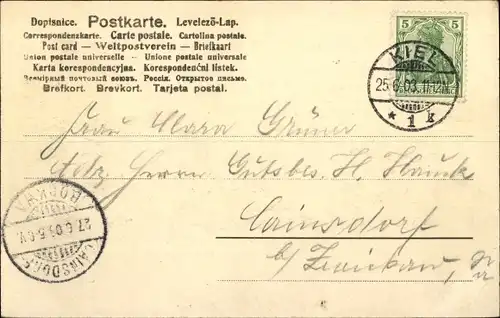 Dopisnice. Postkarte. Levelező-Lap.
Correspondenzkarte. Carte postale. Cartolina postale.
Post card — Weltpostverein — Briefkaart
Union postale universelle - Unione postale universale
Karta korespondencyjna. Korespondenční lístek.
Всемірный почтовый союзъ. Россія. Открытое письмо.
Brefkort. Brevkort. Tarjeta postal.
5 5
KIEL
25.6.03. 11-12V.
* 1 k
Frau Clara Grüner
Herrn Gutsbes. H. Hauck
Cainsdorf
b/ Zwickau,
CAINSDORF
27.6.03.